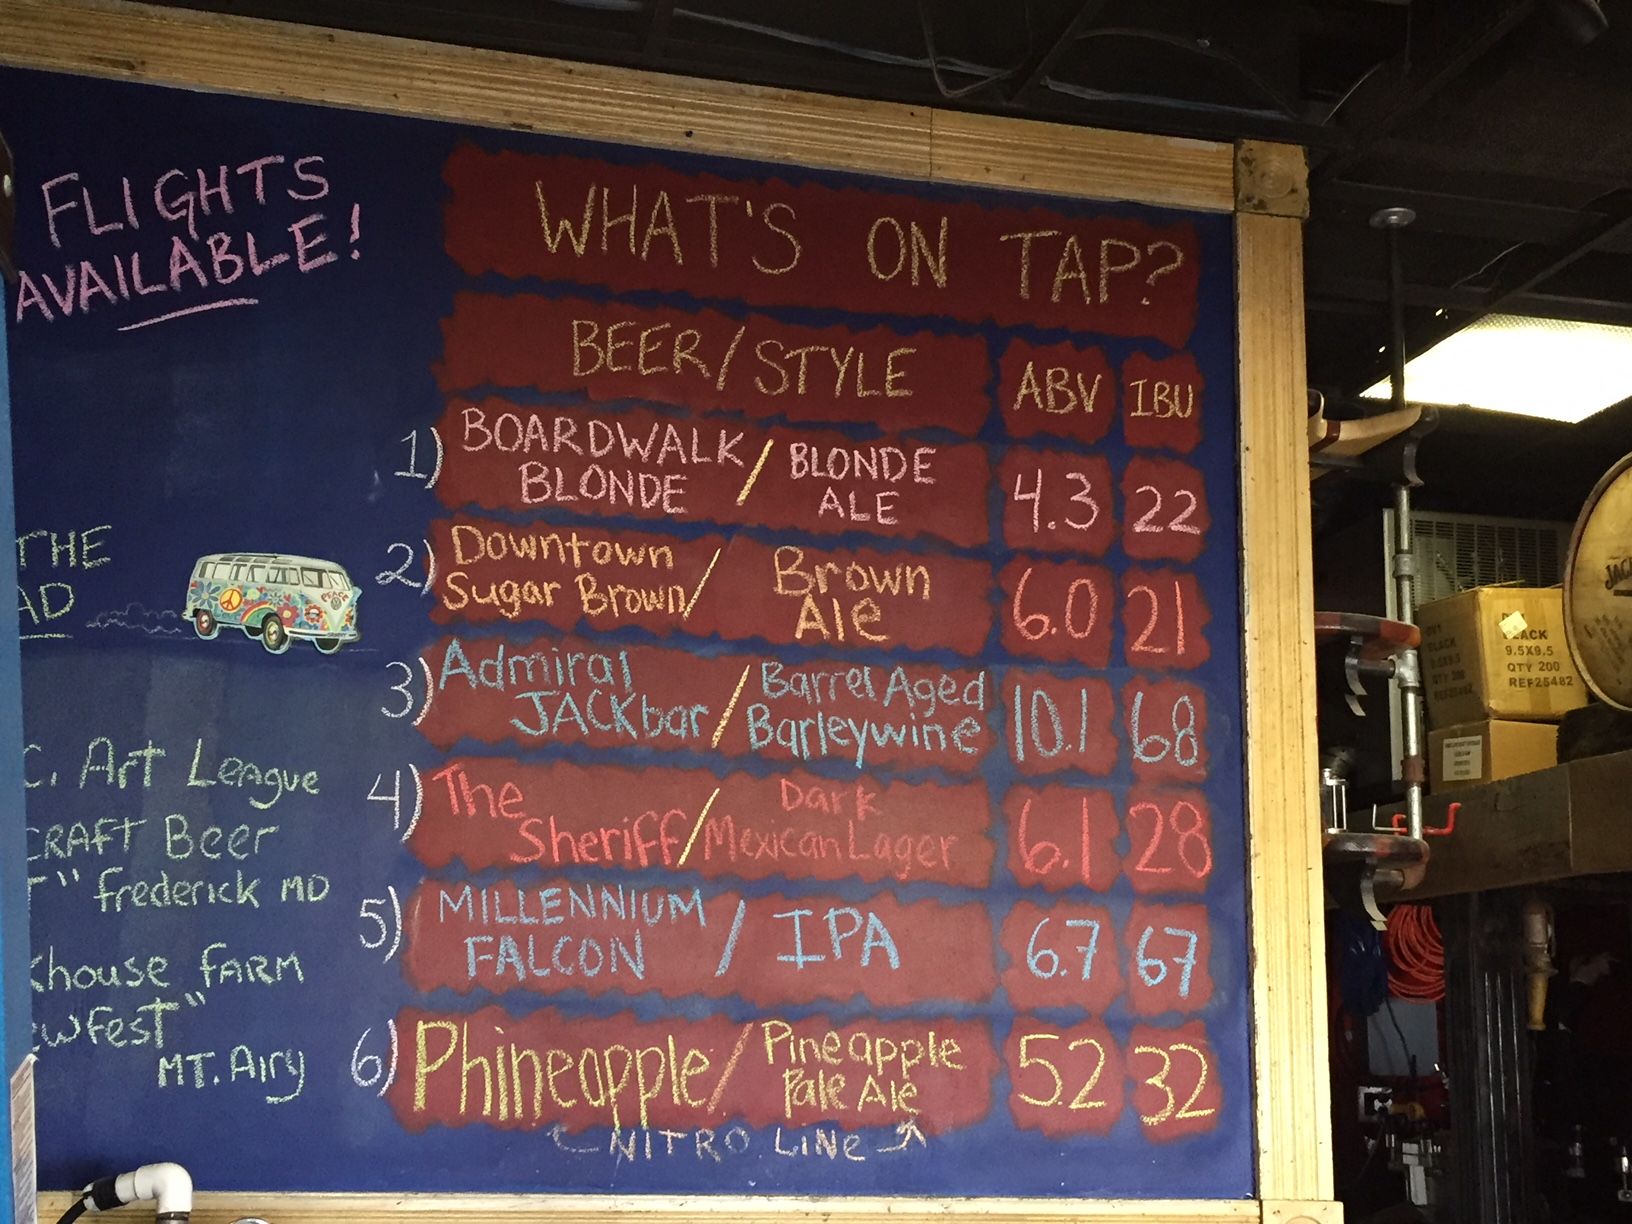 FLIGHTS
AVAILABLE!
THE
AD
C. Art League
CRAFT Beer
T" frederick MD
khouse FARM
ewfest"
MT. Airy
WHAT'S ON TAP?
BEER/STYLE ABV IBU
1) BOARDWALK / BLONDE 4.3 22
BLONDE ALE
2) Downtown / Brown 6.0 21
Sugar Brown Ale
3) Admiral / Barrel Aged 10.1 68
JACKbar Barleywine
4) The / Dark 6.1 28
Sheriff Mexican Lager
5) MILLENNIUM / IPA 6.7 67
FALCON
6) Phineapple / Pineapple 5.2 32
Pale Ale
NITRO LiNe
BLACK
9.5X9.5
QTY 200
REF25482
JAC